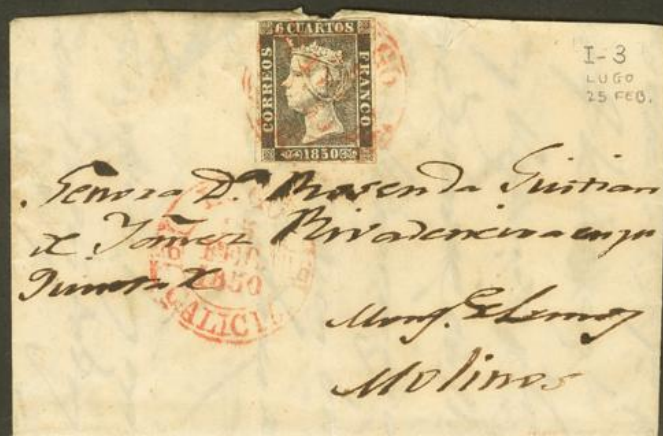 6 CUARTOS
CORREOS
FRANCO
1850
I-3
LUGO
25 FEB.
Señora Dª Rosenda Guitian
Rivadeneira en su
1850
GALICIA
Monf. de Lemos
Molinos